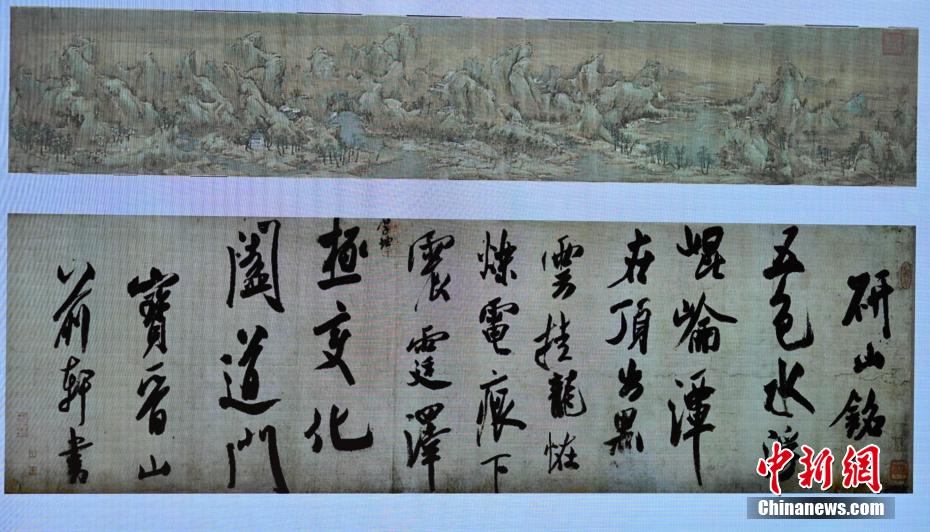 研山銘
五色水浮
崐崙潭
在頂出黑
雲挂龍恠
爍電痕下
震霆澤
厚坤
極变化
闔道門
寶晋山
前軒書
中新网
Chinanews.com